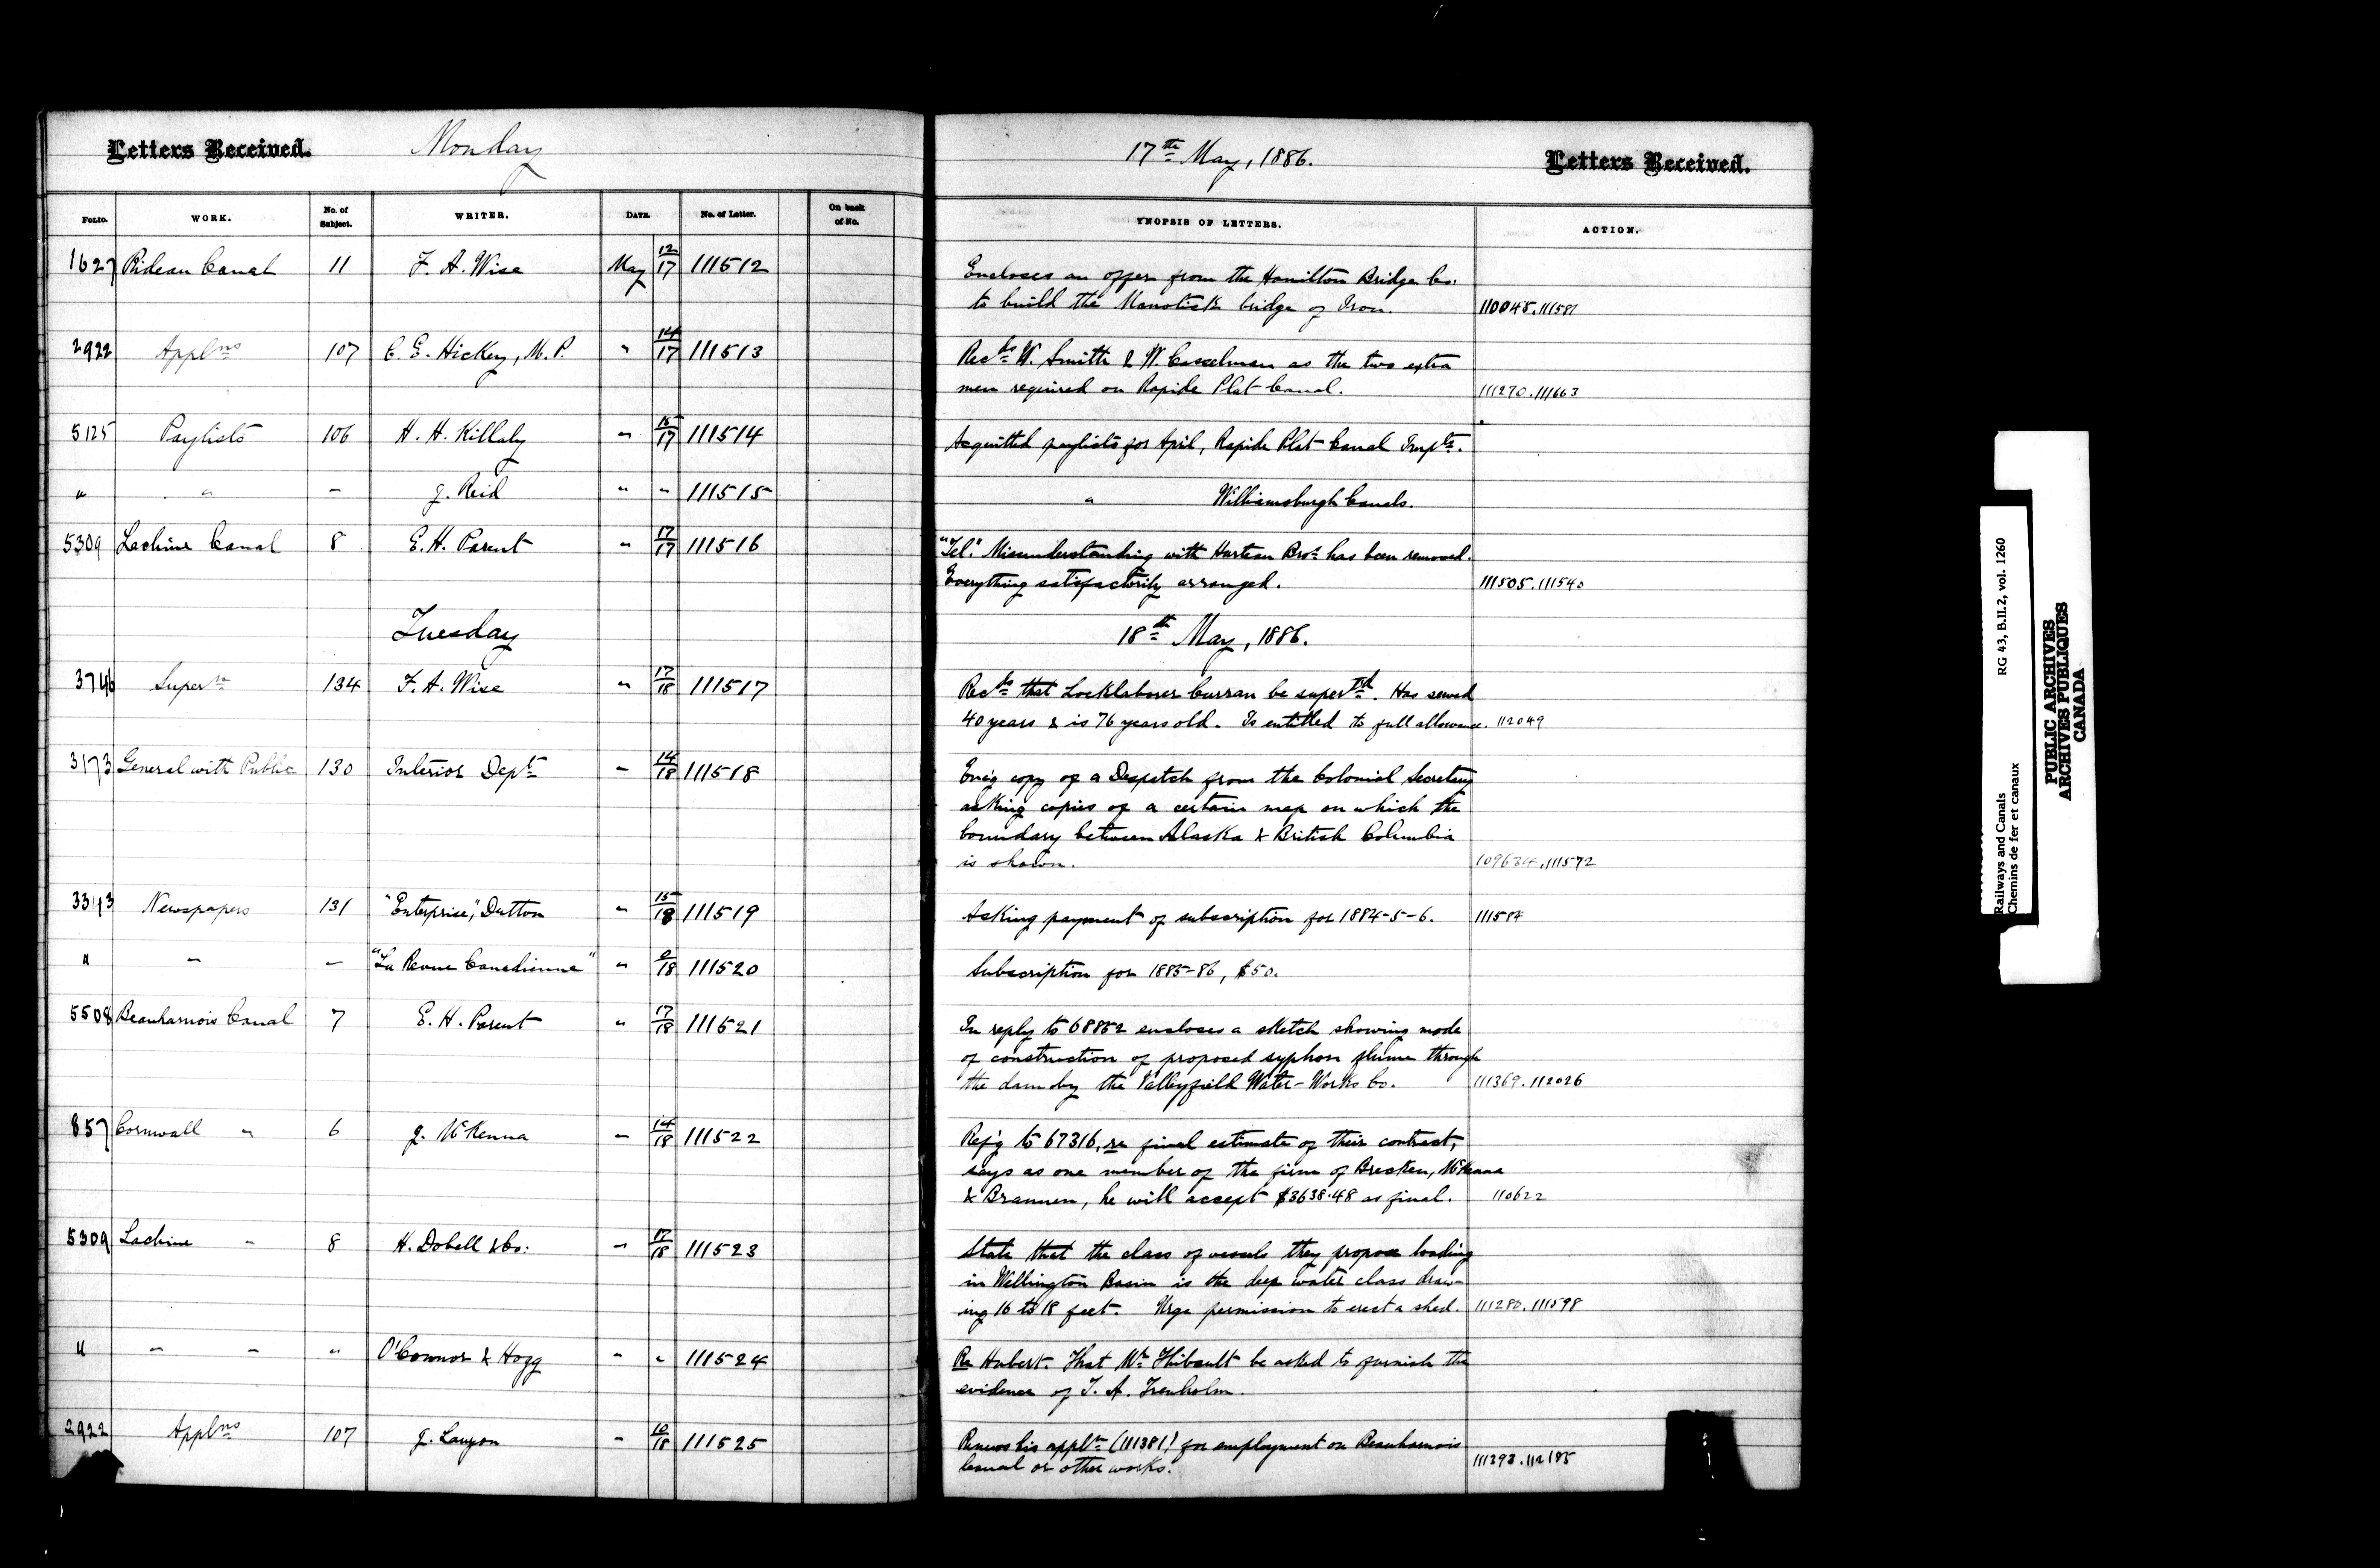 Letters Received. Monday 17th May, 1886. Letters Received.
FOLIO. WORK. No. of Subject. WRITER. DATE. No. of Letter. On back of No. SYNOPSIS OF LETTERS. ACTION.
1627 Rideau Canal 11 F. A. Wise May 12/17 111512 Encloses an offer from the Hamilton Bridge Co.
to build the Manotick bridge of Iron. 110045.111581
2922 Applns 107 C. E. Hickey, M.P. " 14/17 111513 Recds W. Smith & W. Casselman as the two extra
men required on Rapide Plat Canal. 111270.111663
5125 Paylists 106 H. H. Killaly " 15/17 111514 Acquitted paylists for April, Rapide Plat Canal Impts.
" " " J. Reid " " 111515 " Williamsburgh Canals.
5309 Lachine Canal 8 E. H. Parent " 17/17 111516 "Tel." Misunderstanding with Harteau Bros has been removed.
Everything satisfactorily arranged. 111505.111540
Tuesday 18th May, 1886.
3746 Supern 134 F. A. Wise " 17/18 111517 Recds that Locklaborer Curran be supertd. Has served
40 years & is 76 years old. Is entitled to full allowance. 112049
3173 General with Public 130 Interior Dept " 14/18 111518 Enc'g copy of a Despatch from the Colonial Secretary
asking copies of a certain map on which the
boundary between Alaska & British Columbia
is shown. 109634.111572
3343 Newspapers 131 "Enterprise," Dutton " 15/18 111519 Asking payment of subscription for 1884-5-6. 111584
" " " "La Revue Canadienne" " 0/18 111520 Subscription for 1885-86, $50.
5508 Beauharnois Canal 7 E. H. Parent " 17/18 111521 In reply to 68852 encloses a sketch showing mode
of construction of proposed syphon flume through
the dam by the Valleyfield Water-Works Co. 111369.112026
857 Cornwall " 6 J. McKenna " 14/18 111522 Ref'g to 67316, re final estimate of their contract,
says as one member of the firm of Brecken, McKenna
& Brannen, he will accept $3638.48 as final. 110622
5309 Lachine " 8 H. Dobell & Co. " 17/18 111523 State that the class of vessels they propose loading
in Wellington Basin is the deep water class draw-
ing 16 to 18 feet. Urge permission to erect a shed. 111280.111598
" " " " O'Connor & Hogg " " 111524 Re Hubert. That Mr Thibault be asked to furnish the
evidence of T. A. Trenholm.
2922 Applns 107 J. Lauzon " 10/18 111525 Renews his appltn (111381) for employment on Beauharnois
Canal or other works. 111393.112185
RG 43, B.II.2, vol. 1260
Railways and Canals
Chemins de fer et canaux
PUBLIC ARCHIVES
ARCHIVES PUBLIQUES
CANADA